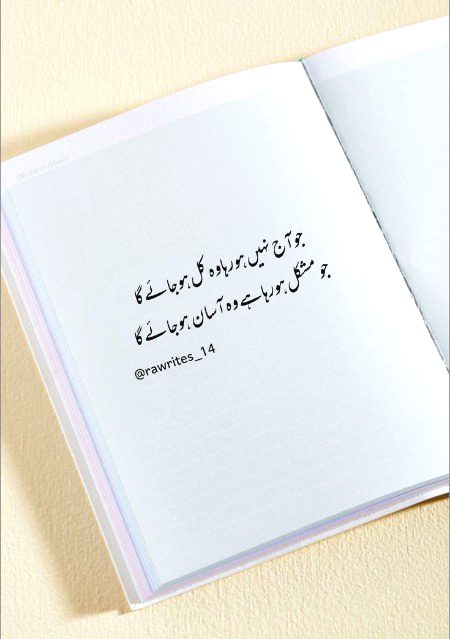 جو آج نہیں ہو رہا وہ کل ہو جائے گا
جو مشکل ہو رہا ہے وہ آسان ہو جائے گا
@rawrites_14